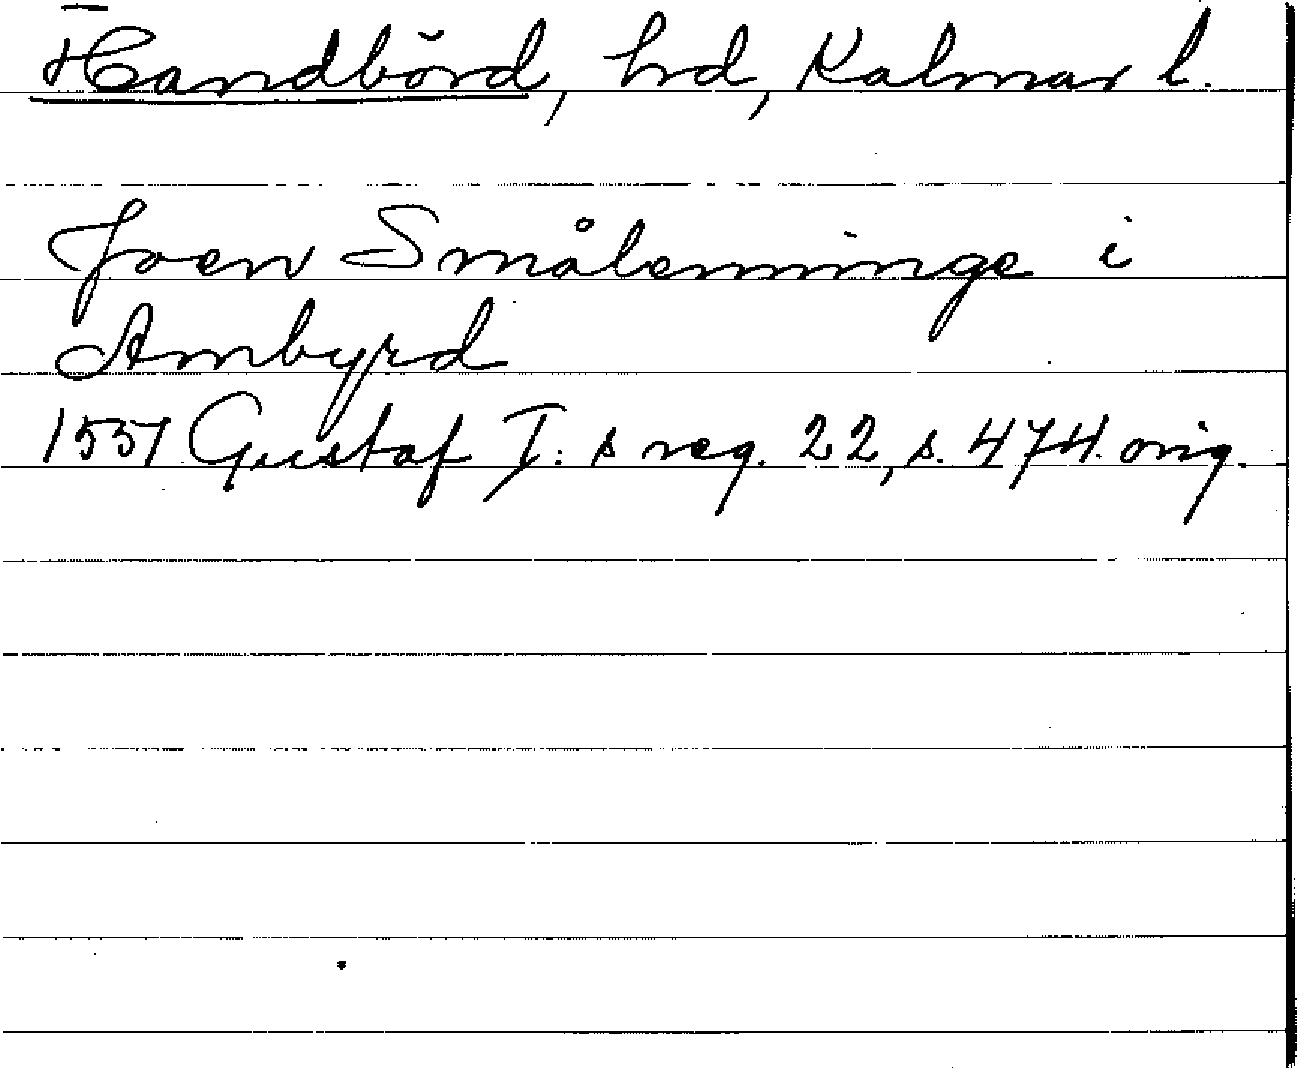 Handbörd, hd, Kalmar l.
Joen Smålenninge i
Ambyrd
1551 Gustaf I: s reg. 22, s. 474. orig.